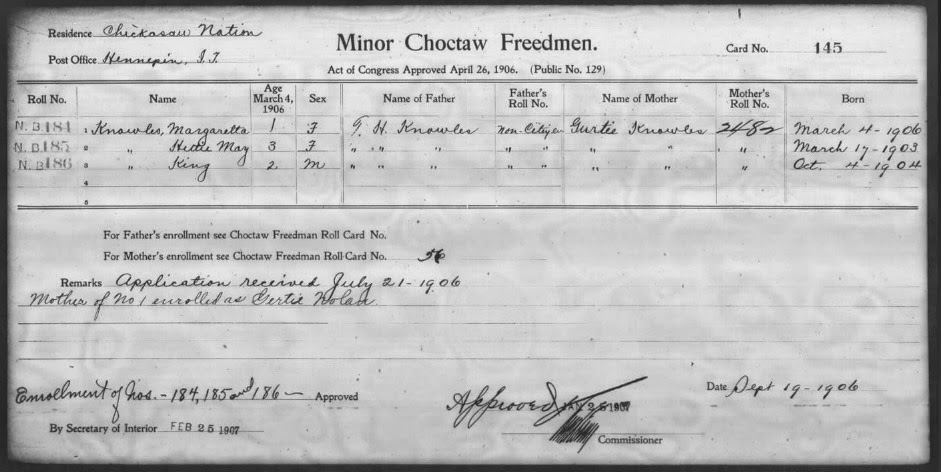 Residence Chickasaw Nation
Post Office Hennepin, I.T.
Minor Choctaw Freedmen.
Card No. 145
Act of Congress Approved April 26, 1906. (Public No. 129)
Roll No. Name Age March 4, 1906 Sex Name of Father Father's Roll No. Name of Mother Mother's Roll No. Born
N.B 184 1 Knowles, Margaretta 1 F T. H. Knowles Non-Citizen Gurtie Knowles 2482 March 4-1906
N.B 185 2 " Hettie May 3 F " " " " " " " " March 17-1903
N.B 186 3 " King 2 M " " " " " " " " Oct. 4-1904
4
5
For Father's enrollment see Choctaw Freedman Roll Card No.
For Mother's enrollment see Choctaw Freedman Roll Card No. 56
Remarks Application received July 21-1906
Mother of No 1 enrolled as Gertie Nolan
Enrollment of Nos.- 184, 185 and 186- Approved
By Secretary of Interior FEB 25 1907
Approved 1907
Commissioner
Date Sept 19-1906